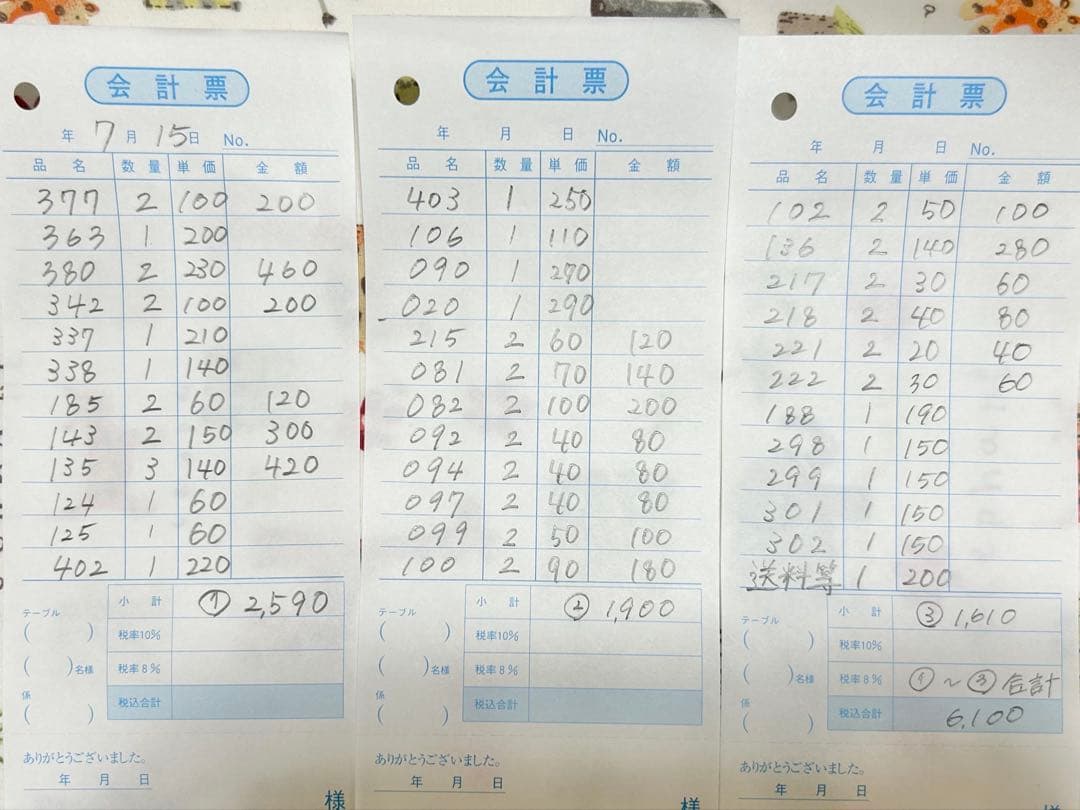 会計票
年 7月 15日 No.
品名 数量 単価 金額
377 2 100 200
363 1 200
380 2 230 460
342 2 100 200
337 1 210
338 1 140
185 2 60 120
143 2 150 300
135 3 140 420
124 1 60
125 1 60
402 1 220
テーブル
( )
( )名様
係
( )
小計 ① 2,590
税率10%
税率8%
税込合計
ありがとうございました。
年 月 日
様
会計票
年 月 日 No.
品名 数量 単価 金額
403 1 250
106 1 110
090 1 270
020 1 290
215 2 60 120
081 2 70 140
082 2 100 200
092 2 40 80
094 2 40 80
097 2 40 80
099 2 50 100
100 2 90 180
テーブル
( )
( )名様
係
( )
小計 ② 1,900
税率10%
税率8%
税込合計
ありがとうございました。
年 月 日
様
会計票
年 月 日 No.
品名 数量 単価 金額
102 2 50 100
136 2 140 280
217 2 30 60
218 2 40 80
221 2 20 40
222 2 30 60
188 1 190
298 1 150
299 1 150
301 1 150
302 1 150
送料等 1 200
テーブル
( )
( )名様
係
( )
小計 ③ 1,610
税率10%
税率8% ①～③合計
税込合計 6,100
ありがとうございました。
年 月 日
様